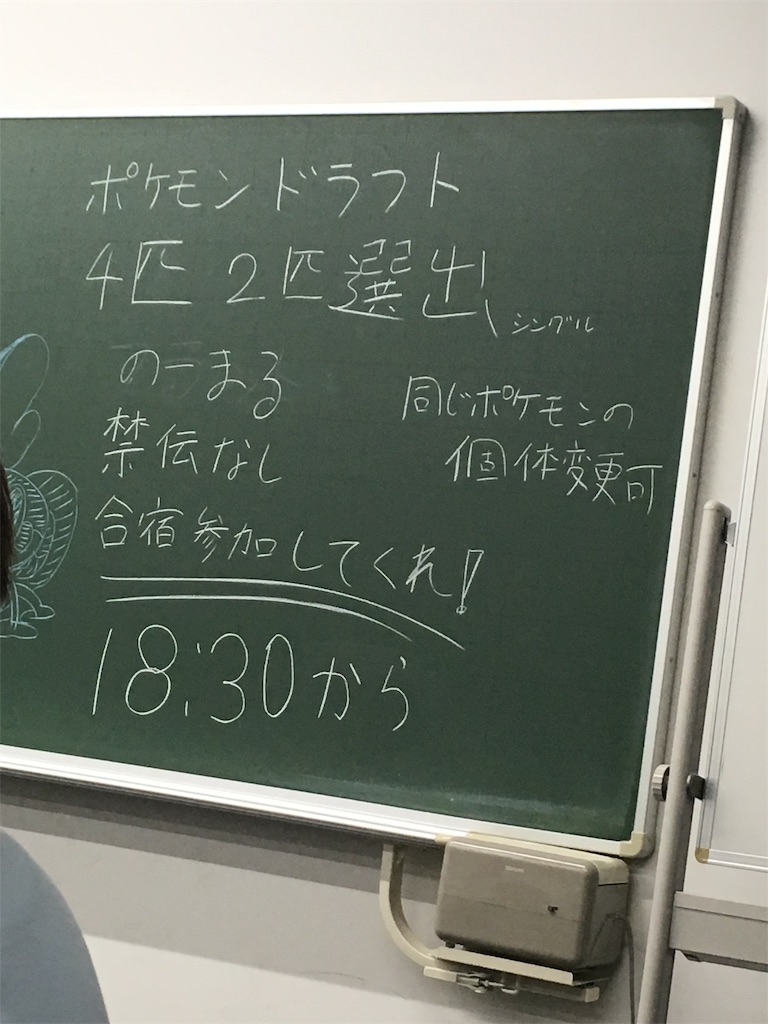 ポケモンドラフト
4匹 2匹選出 シングル
のーまる
禁伝なし
同じポケモンの
個体変更可
合宿参加してくれ!
18:30から